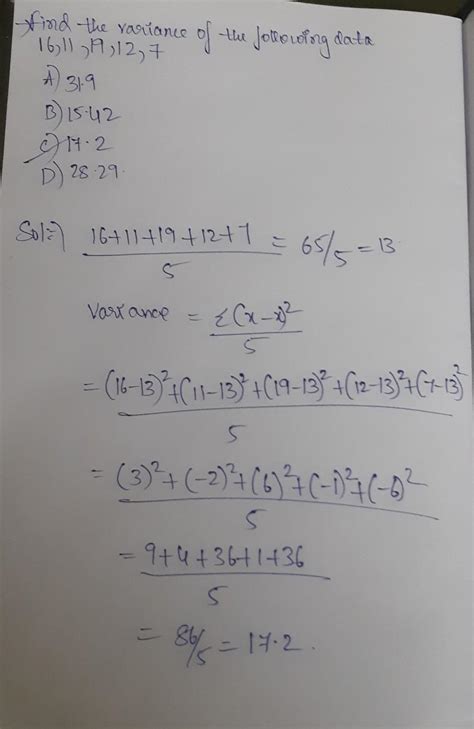 → Find the variance of the following data
16,11,19,12,7
A) 31.9
B) 15.42
C) 17.2
D) 28.29
Sol:-) 16+11+19+12+7/5 = 65/5 = 13
Variance = Σ(x-x)²/5
= (16-13)²+(11-13)²+(19-13)²+(12-13)²+(7-13)²/5
= (3)²+(-2)²+(6)²+(-1)²+(-6)²/5
= 9+4+36+1+36/5
= 86/5 = 17.2.